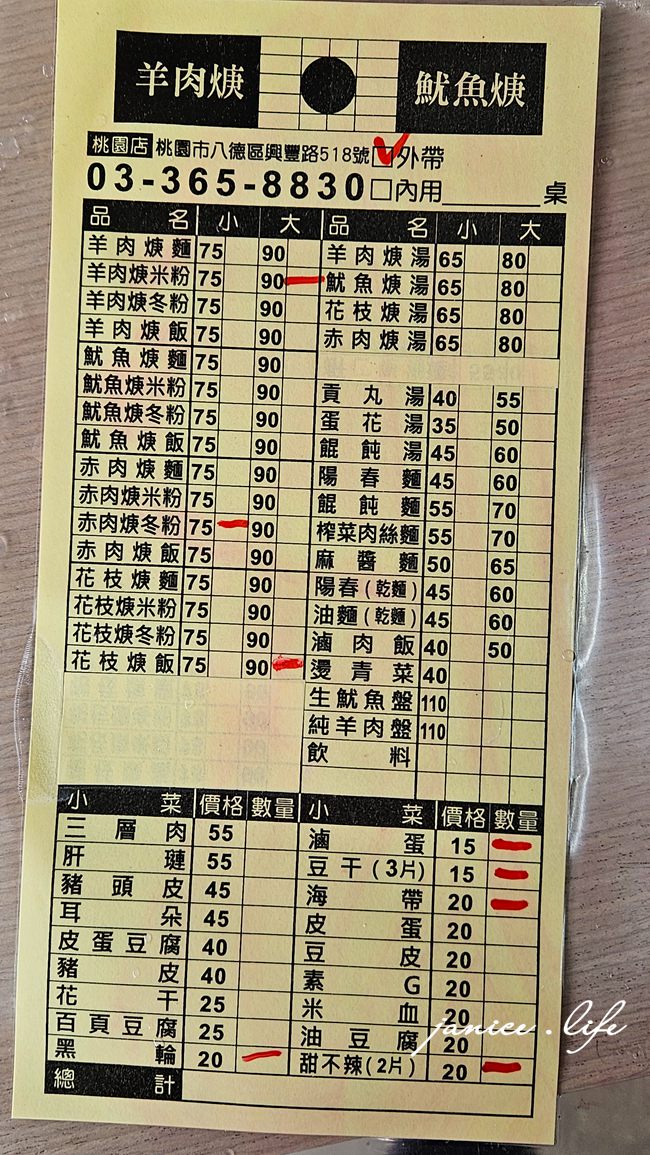 羊肉焿 魷魚焿
桃園店 桃園市八德區興豐路518號 □外帶
03-365-8830 □內用______桌
品名 小 大
羊肉焿麵 75 90
羊肉焿米粉 75 90
羊肉焿冬粉 75 90
羊肉焿飯 75 90
魷魚焿麵 75 90
魷魚焿米粉 75 90
魷魚焿冬粉 75 90
魷魚焿飯 75 90
赤肉焿麵 75 90
赤肉焿米粉 75 90
赤肉焿冬粉 75 90
赤肉焿飯 75 90
花枝焿麵 75 90
花枝焿米粉 75 90
花枝焿冬粉 75 90
花枝焿飯 75 90
品名 小 大
羊肉焿湯 65 80
魷魚焿湯 65 80
花枝焿湯 65 80
赤肉焿湯 65 80
貢丸湯 40 55
蛋花湯 35 50
餛飩湯 45 60
陽春麵 45 60
餛飩麵 55 70
榨菜肉絲麵 55 70
麻醬麵 50 65
陽春(乾麵) 45 60
油麵(乾麵) 45 60
滷肉飯 40 50
燙青菜 40
生魷魚盤 110
純羊肉盤 110
飲料
小菜 價格 數量
三層肉 55
肝璉 55
豬頭皮 45
耳朵 45
皮蛋豆腐 40
豬皮 40
花干 25
百頁豆腐 25
黑輪 20
總計
小菜 價格 數量
滷蛋 15
豆干(3片) 15
海帶 20
皮蛋 20
豆皮 20
素G 20
米血 20
油豆腐 20
甜不辣(2片) 20
janice.life